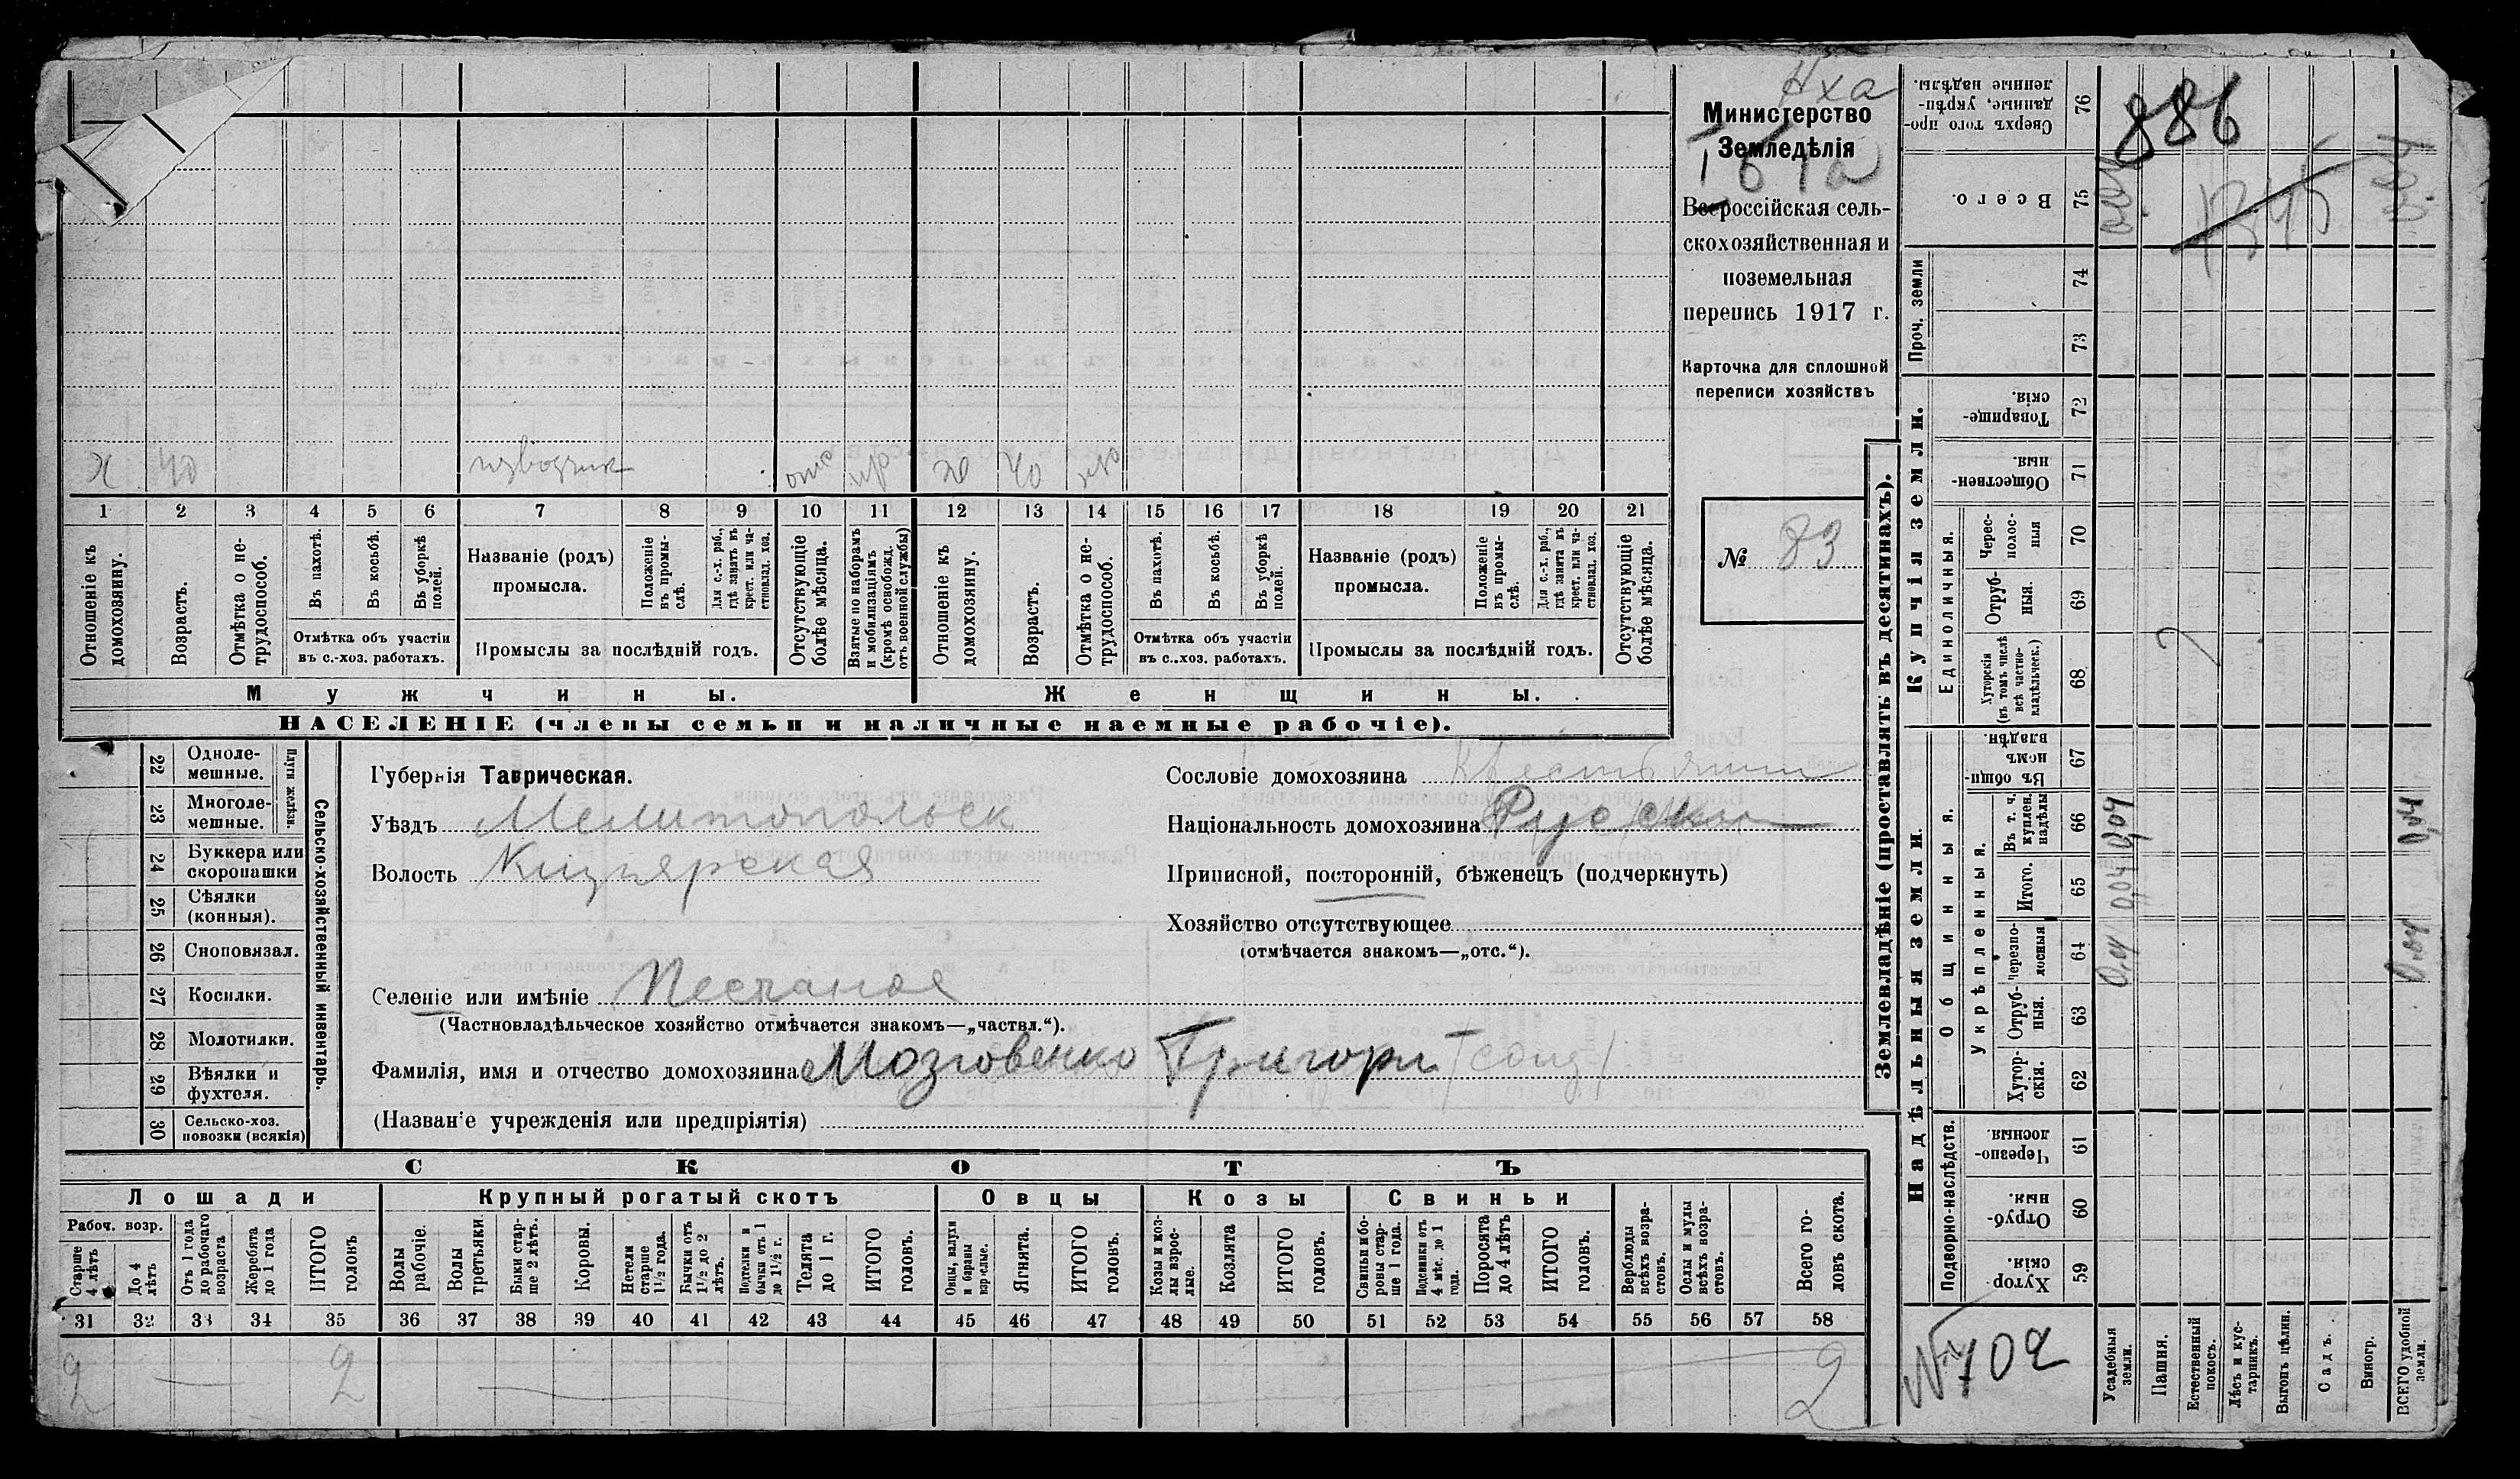 Министерство
Земледѣлія
Всероссійская сель-
скохозяйственная и
поземельная
перепись 1917 г.
Карточка для сплошной
переписи хозяйствъ
№ 83
х 40 извозчик отс нр ж 40 нр
1 2 3 4 5 6 7 8 9 10 11 12 13 14 15 16 17 18 19 20 21
Отношеніе къ домохозяину.
Возрастъ.
Отмѣтка о не-трудоспособ.
Въ пахотѣ.
Въ косьбѣ.
Въ уборкѣ полей.
Отмѣтка объ участіи
въ с.-хоз. работахъ.
Названіе (родъ)
промысла.
Положеніе въ промы-слѣ.
Для с.-х. раб., гдѣ занятъ въ крест. или ча-стновлад. хоз.
Промыслы за послѣдній годъ.
Отсутствующіе болѣе мѣсяца.
Взятые по наборамъ и мобилизаціямъ (кромѣ освобожд. отъ военной службы)
Отношеніе къ домохозяину.
Возрастъ.
Отмѣтка о не-трудоспособ.
Въ пахотѣ.
Въ косьбѣ.
Въ уборкѣ полей.
Отмѣтка объ участіи
въ с.-хоз. работахъ.
Названіе (родъ)
промысла.
Положеніе въ промы-слѣ.
Для с.-х. раб., гдѣ занята въ крест. или ча-стновлад. хоз.
Промыслы за послѣдній годъ.
Отсутствующіе болѣе мѣсяца.
Мужчины. Женщины.
НАСЕЛЕНІЕ (члены семьи и наличные наемные рабочіе).
Сельско-хозяйственный инвентарь.
Плуги желѣзн.
22 Одноле-мешные.
23 Многоле-мешные.
24 Буккера или скоропашки
25 Сѣялки (конныя).
26 Сноповязал.
27 Косилки.
28 Молотилки.
29 Вѣялки и фухтеля.
30 Сельско-хоз. повозки (всякія)
Губернія Таврическая.
Уѣздъ Мелитопольск
Волость Кизиярская
Сословіе домохозяина Крестьянин
Національность домохозяина Русский
Приписной, посторонній, бѣженецъ (подчеркнуть)
Хозяйство отсутствующее
(отмѣчается знакомъ—„отс.“).
Селеніе или имѣніе Песчаное
(Частновладѣльческое хозяйство отмѣчается знакомъ—„частвл.“).
Фамилія, имя и отчество домохозяина Мозговенко Григори
(Названіе учрежденія или предпріятія)
СКОТЪ
Лошади Крупный рогатый скотъ Овцы Козы Свиньи
Рабоч. возр.
Старше 4 лѣтъ
До 4 лѣтъ
Отъ 1 года до рабочаго возраста
Жеребята до 1 года
ИТОГО головъ
Волы рабочіе.
Волы третьяки.
Быки стар-ше 2 лѣтъ.
Коровы.
Нетели старше 1½ года.
Бычки отъ 1½ до 2 лѣтъ.
Подтелки и бычки отъ 1 до 1½ г.
Телята до 1 г.
ИТОГО головъ.
Овцы, валухи и бараны взрослые.
Ягнята.
ИТОГО головъ.
Козы и коз-лы взрос-лые.
Козлята
ИТОГО головъ.
Свиньи и бо-ровы стар-ше 1 года.
Подсвинки отъ 4 мѣс. до 1 года.
Поросята до 4 лѣтъ
ИТОГО головъ.
Верблюды всѣхъ возра-стовъ.
Ослы и мулы всѣхъ возра-стовъ.
Всего го-ловъ скота.
31 32 33 34 35 36 37 38 39 40 41 42 43 44 45 46 47 48 49 50 51 52 53 54 55 56 57 58
2 — 2 2
Землевладѣніе (проставлять въ десятинахъ).
Сверхъ того про-данные, укрѣп-ленные надѣлы. 76
Всего. 75
Проч. земли 74 73
Купчія земли.
Товарище-скія. 72
Обществен-ныя. 71
Единоличныя.
Черес-полос-ныя 70
Отруб-ныя. 69
Хуторскія (въ томъ числѣ всѣ частно-владѣльческ.) 68
Надѣльныя земли.
Общинныя.
Въ общи-номъ владѣн. 67
Укрѣпленныя.
Въ т. ч. куплен. надѣлы 66
Итого. 65
Черезпо-лосныя 64
Отруб-ныя. 63
Хутор-скія. 62
Подворно-наслѣдств.
Черезпо-лосныя. 61
Отруб-ныя. 60
Хутор-скія. 59
Усадебныя земли.
Пашня.
Естественный покосъ.
Лѣсъ и кус-тарникъ.
Выгонъ цѣлин.
Садъ.
Виногр.
ВСЕГО удобной земли.
886
1345
0,04 0,04 0,04 0,04
0,04 0,04 0,04
№ 102